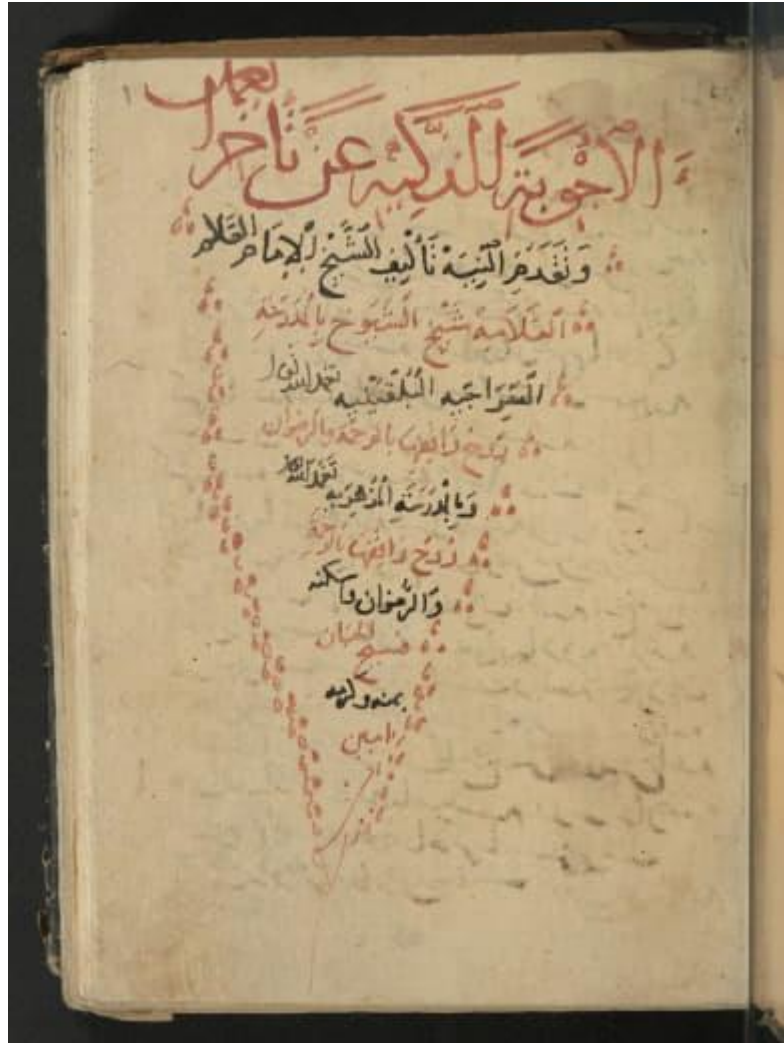 العمل
الأجوبة الذكية عن تأخر
وتقدم النية تأليف الشيخ الإمام العلام
العلامة شيخ الشيوخ بالمدرسة
السراجية البلقينية تغمد الله نور
ضريح واقفها بالرحمة والرضوان
وبالمدرسة المزهرية تغمد الله
روح واقفها بالرحمة
والرضوان واسكنه
فسيح الجنان
بمنه وكرمه
امين